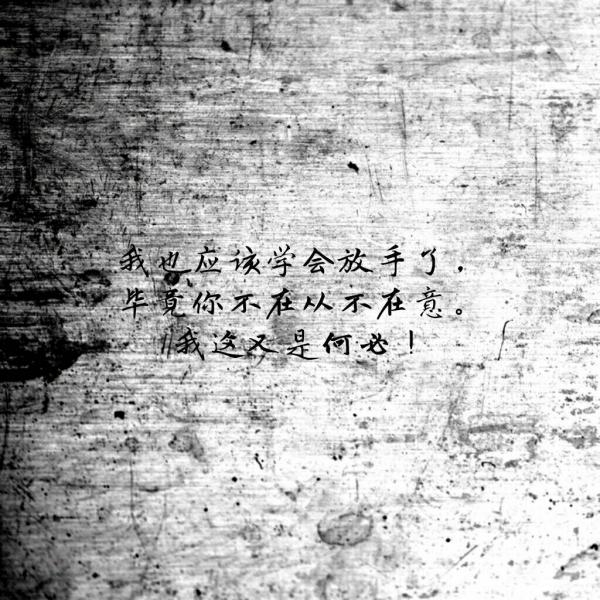 我也应该学会放手了，
毕竟你不在从不在意。
我这又是何必！